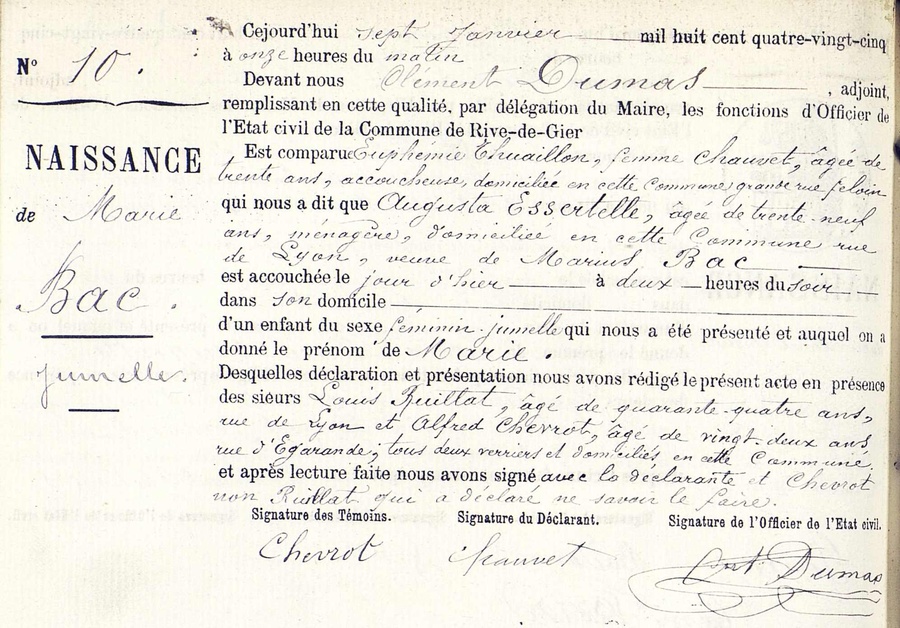 Nº 10.
NAISSANCE
de Marie
Bac.
jumelle.
Cejourd'hui sept Janvier mil huit cent quatre-vingt-cinq
à onze heures du matin
Devant nous Clément Dumas, adjoint,
remplissant en cette qualité, par délégation du Maire, les fonctions d'Officier de
l'Etat civil de la Commune de Rive-de-Gier
Est comparue Euphémie Thuaillon, femme Chauvet, âgée de
trente ans, accoucheuse, domiciliée en cette Commune, grande rue feloin
qui nous a dit que Augusta Essertelle, âgée de trente-neuf
ans, ménagère, domiciliée en cette Commune rue
de Lyon, veuve de Marius Bac
est accouchée le jour d'hier à deux heures du soir
dans son domicile
d'un enfant du sexe féminin-jumelle qui nous a été présenté et auquel on a
donné le prénom de Marie
Desquelles déclaration et présentation nous avons rédigé le présent acte en présence
des sieurs Louis Ruillat, âgé de quarante-quatre ans,
rue de Lyon et Alfred Chevrot, âgé de vingt-deux ans,
rue d'Egarande, tous deux verriers et domiciliés en cette Commune,
et après lecture faite nous avons signé avec la déclarante et Chevrot
non Ruillat qui a déclaré ne savoir le faire.
Signature des Témoins. Signature du Déclarant. Signature de l'Officier de l'Etat civil.
Chevrot Chauvet Dumas